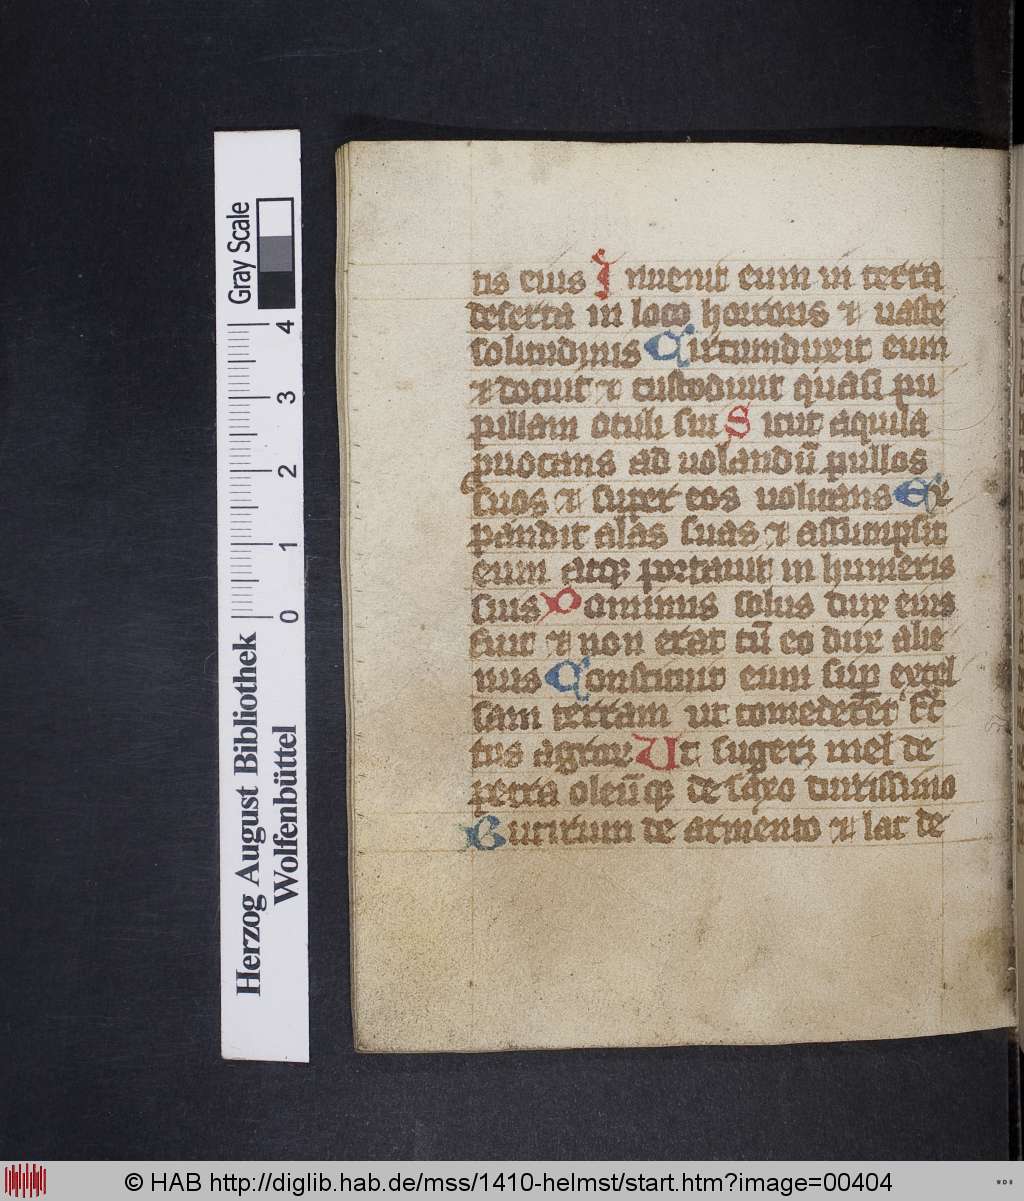 tis eius Inuenit eum in terra
deserta in loco horroris et uaste
solitudinis Circumduxit eum
et docuit et custodiuit quasi pu
pillam oculi sui Sicut aquila
puocans ad uolandū pullos
suos et super eos uolitans Ex
pandit alas suas et assumpsit
eum atqꝫ portauit in humeris
suis Dominus solus dux eius
fuit et non erat cū eo deus alie
nus Constituit eum sup excel
sam terram ut comederēt fruc
tus agror Ut sugerꝫ mel de
petra oleūqꝫ de saxo durissimo
Butirum de armento et lac de
Gray Scale
0 1 2 3 4
Herzog August Bibliothek
Wolfenbüttel
© HAB http://diglib.hab.de/mss/1410-helmst/start.htm?image=00404